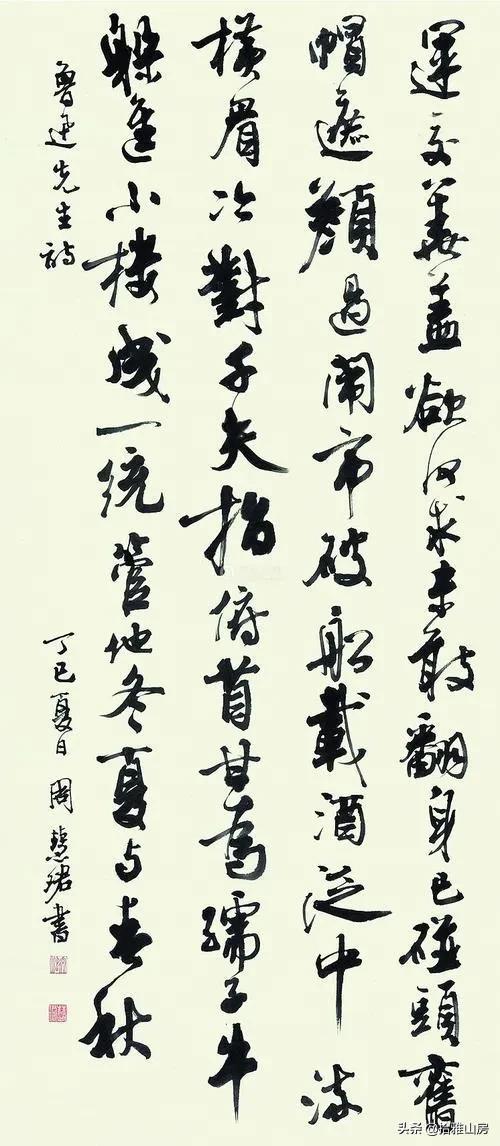 運交華蓋欲何求未敢翻身已碰頭舊
帽遮顏過鬧市破船載酒泛中流
横眉冷對千夫指俯首甘為孺子牛
躲進小樓成一統管他冬夏与春秋
魯迅先生詩
丁巳夏日 周慧珺書
头条 @拾雅山房